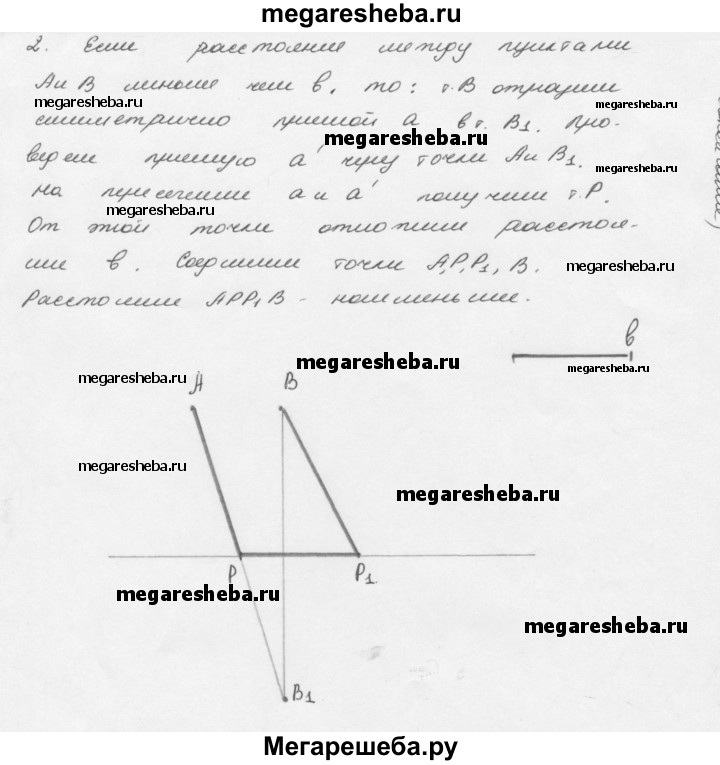 megaresheba.ru
2. Если расстояние между пунктами
А и В меньше чем в, то: т.В отразим
megaresheba.ru megaresheba.ru
симметрично прямой а в т. В1. Про-
megaresheba.ru
ведем прямую а' через точки А и В1.
megaresheba.ru
на пересечении а и а' получим т.Р.
megaresheba.ru
От этой точки отложим расстоя-
ние в. Соединим точки А,Р,Р1, В.
megaresheba.ru
Расстояние АРР1В - наименьшее.
в
megaresheba.ru
megaresheba.ru
megaresheba.ru
А В
megaresheba.ru
megaresheba.ru
Р Р1
megaresheba.ru
megaresheba.ru
В1
Мегарешеба.ру